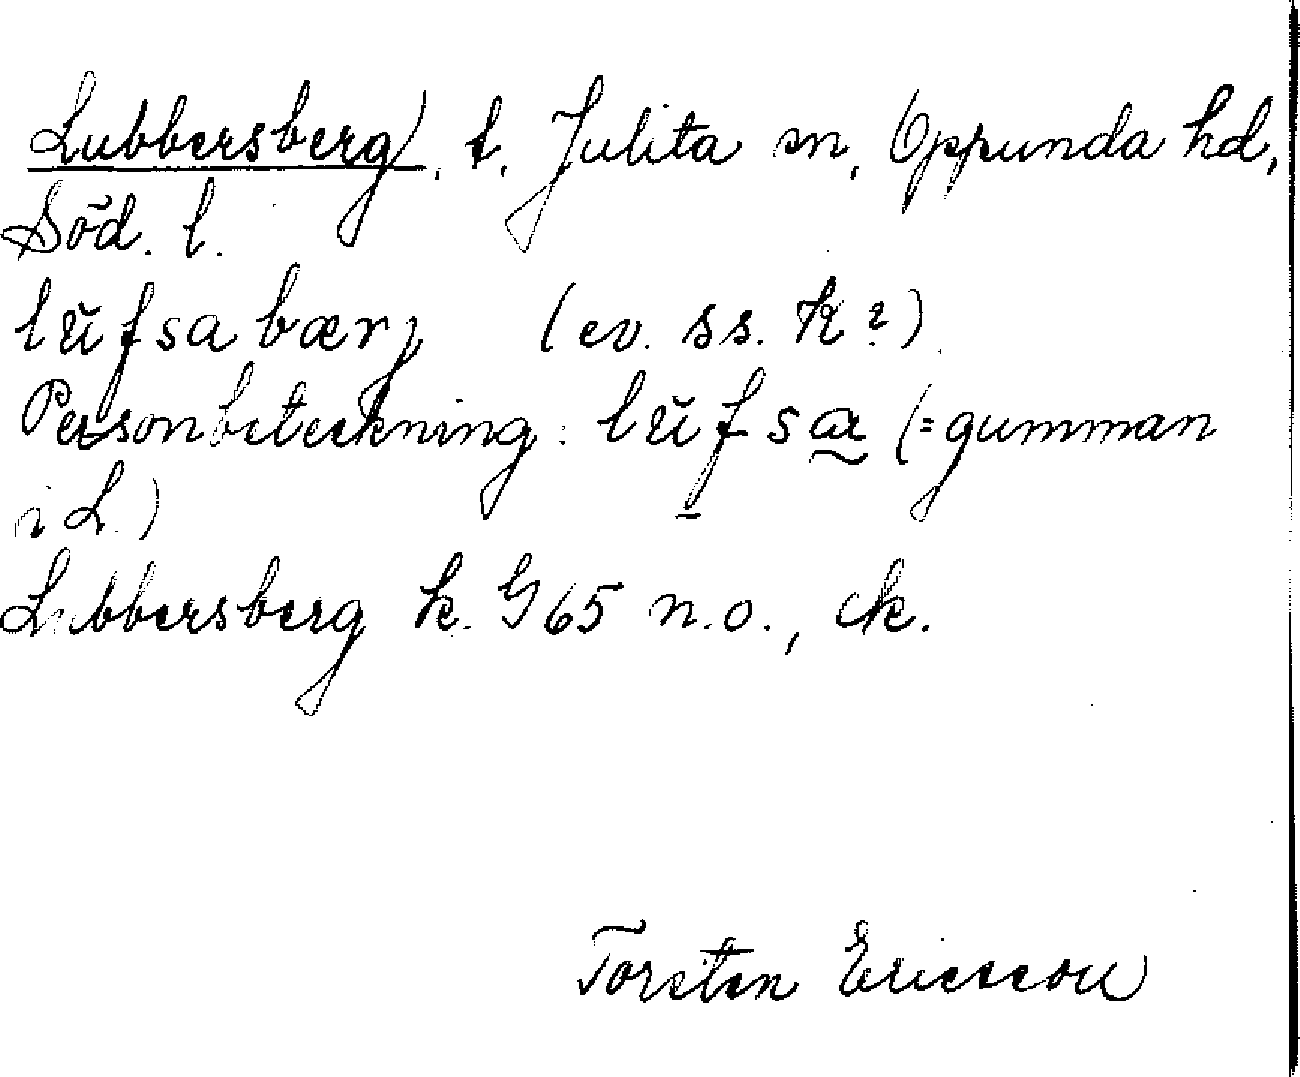 Lubbersberg), t. Julita sn, Oppunda hd,
Söd. l.
lŭfsabærj (ev. ss. k?)
Personbeteckning: lŭfsa (=gumman
i L.)
Lubbersberg k. G65 n.o., ck.
Torsten Ericsson